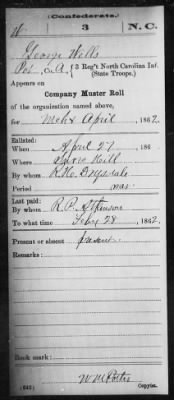 (Confederate.)
W 3 N.C.
George Wells
Pvt, Co. A { 3 Reg't North Carolina Inf.
(State Troops.)
Appears on
Company Muster Roll
of the organization named above,
for Mch & April, 1862
Enlisted:
When April 27, 186
Where Snow Hill
By whom R. H. Drysdale
Period war
Last paid:
By whom R. P. Atkinson
To what time Feby 28, 1862
Present or absent Present
Remarks:
Book mark:
(642) Copyist.